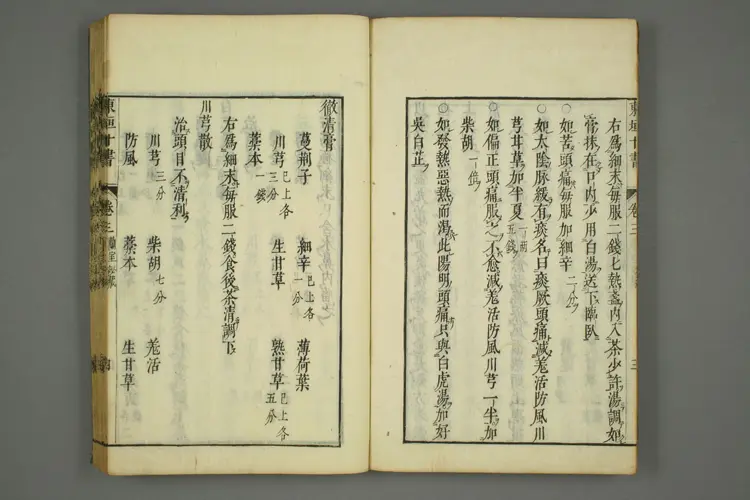 東垣十書
卷三
三
右爲細末每服二錢七熱盞內入茶少許湯調如
膏抹在口內少用白湯送下臨臥
○如苦頭痛每服加細辛二分
○如太陰脉緩有痰名曰痰厥頭痛減羗活防風川
芎甘草加半夏一兩五錢
○如偏正頭痛服之不愈減羗活防風川芎一半加
柴胡一倍
○如發熱惡熱而渴此陽明頭痛只與白虎湯加好
吳白芷
徹清膏
蔓荊子 細辛已上各一分 薄荷葉
川芎已上各三分 生甘草 熟甘草已上各五分
藁本一錢
右爲細末每服二錢食後茶清調下
川芎散
治頭目不清利
川芎三分 柴胡七分 羗活
防風 藁本 生甘草
東垣十書
卷三
四